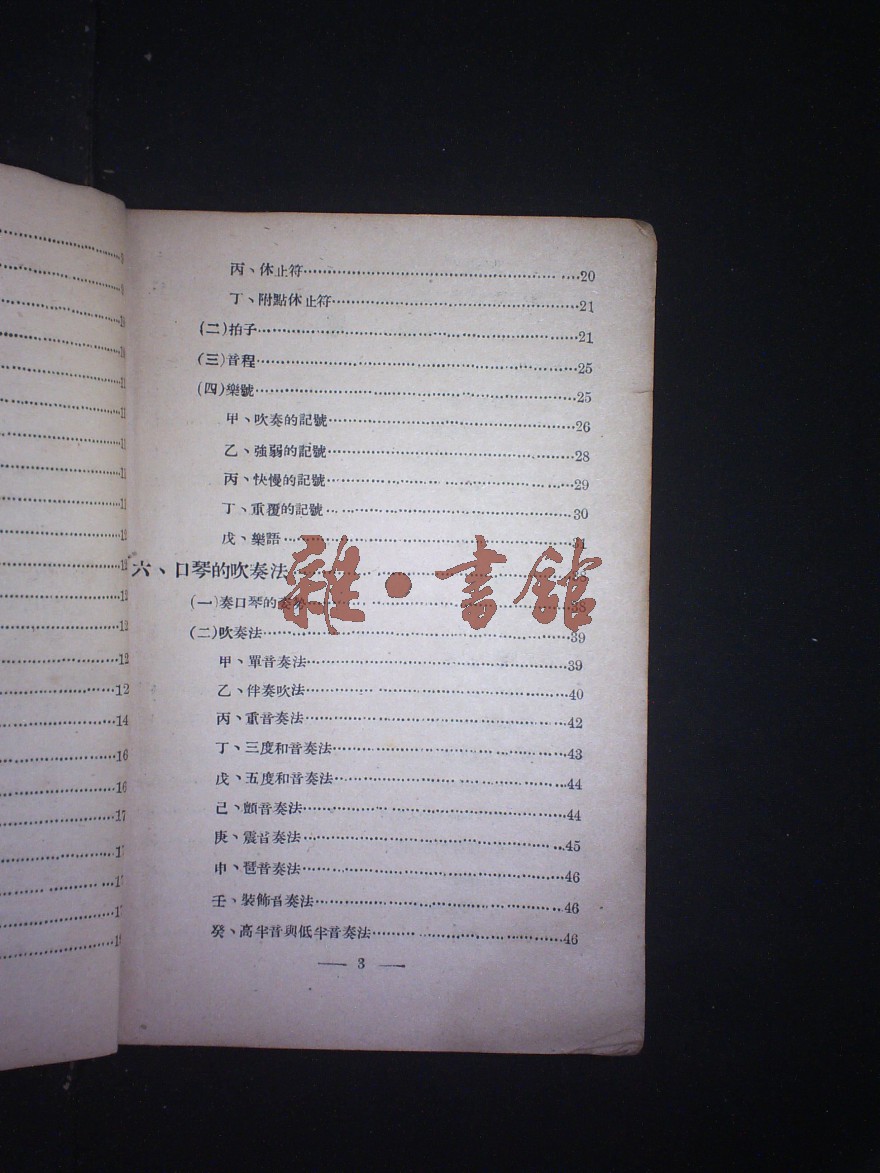 丙、休止符……20
丁、附點休止符……21
(二)拍子……21
(三)音程……25
(四)樂號……25
甲、吹奏的記號……26
乙、強弱的記號……28
丙、快慢的記號……29
丁、重覆的記號……30
戊、樂語……31
六、口琴的吹奏法……
(一)奏口琴的姿勢……38
(二)吹奏法……39
甲、單音奏法……39
乙、伴奏吹法……40
丙、重音奏法……42
丁、三度和音奏法……43
戊、五度和音奏法……44
己、顫音奏法……44
庚、震音奏法……45
申、琶音奏法……46
壬、裝飾音奏法……46
癸、高半音與低半音奏法……46
— 3 —
雜·書館
12
12
14
16
16
17